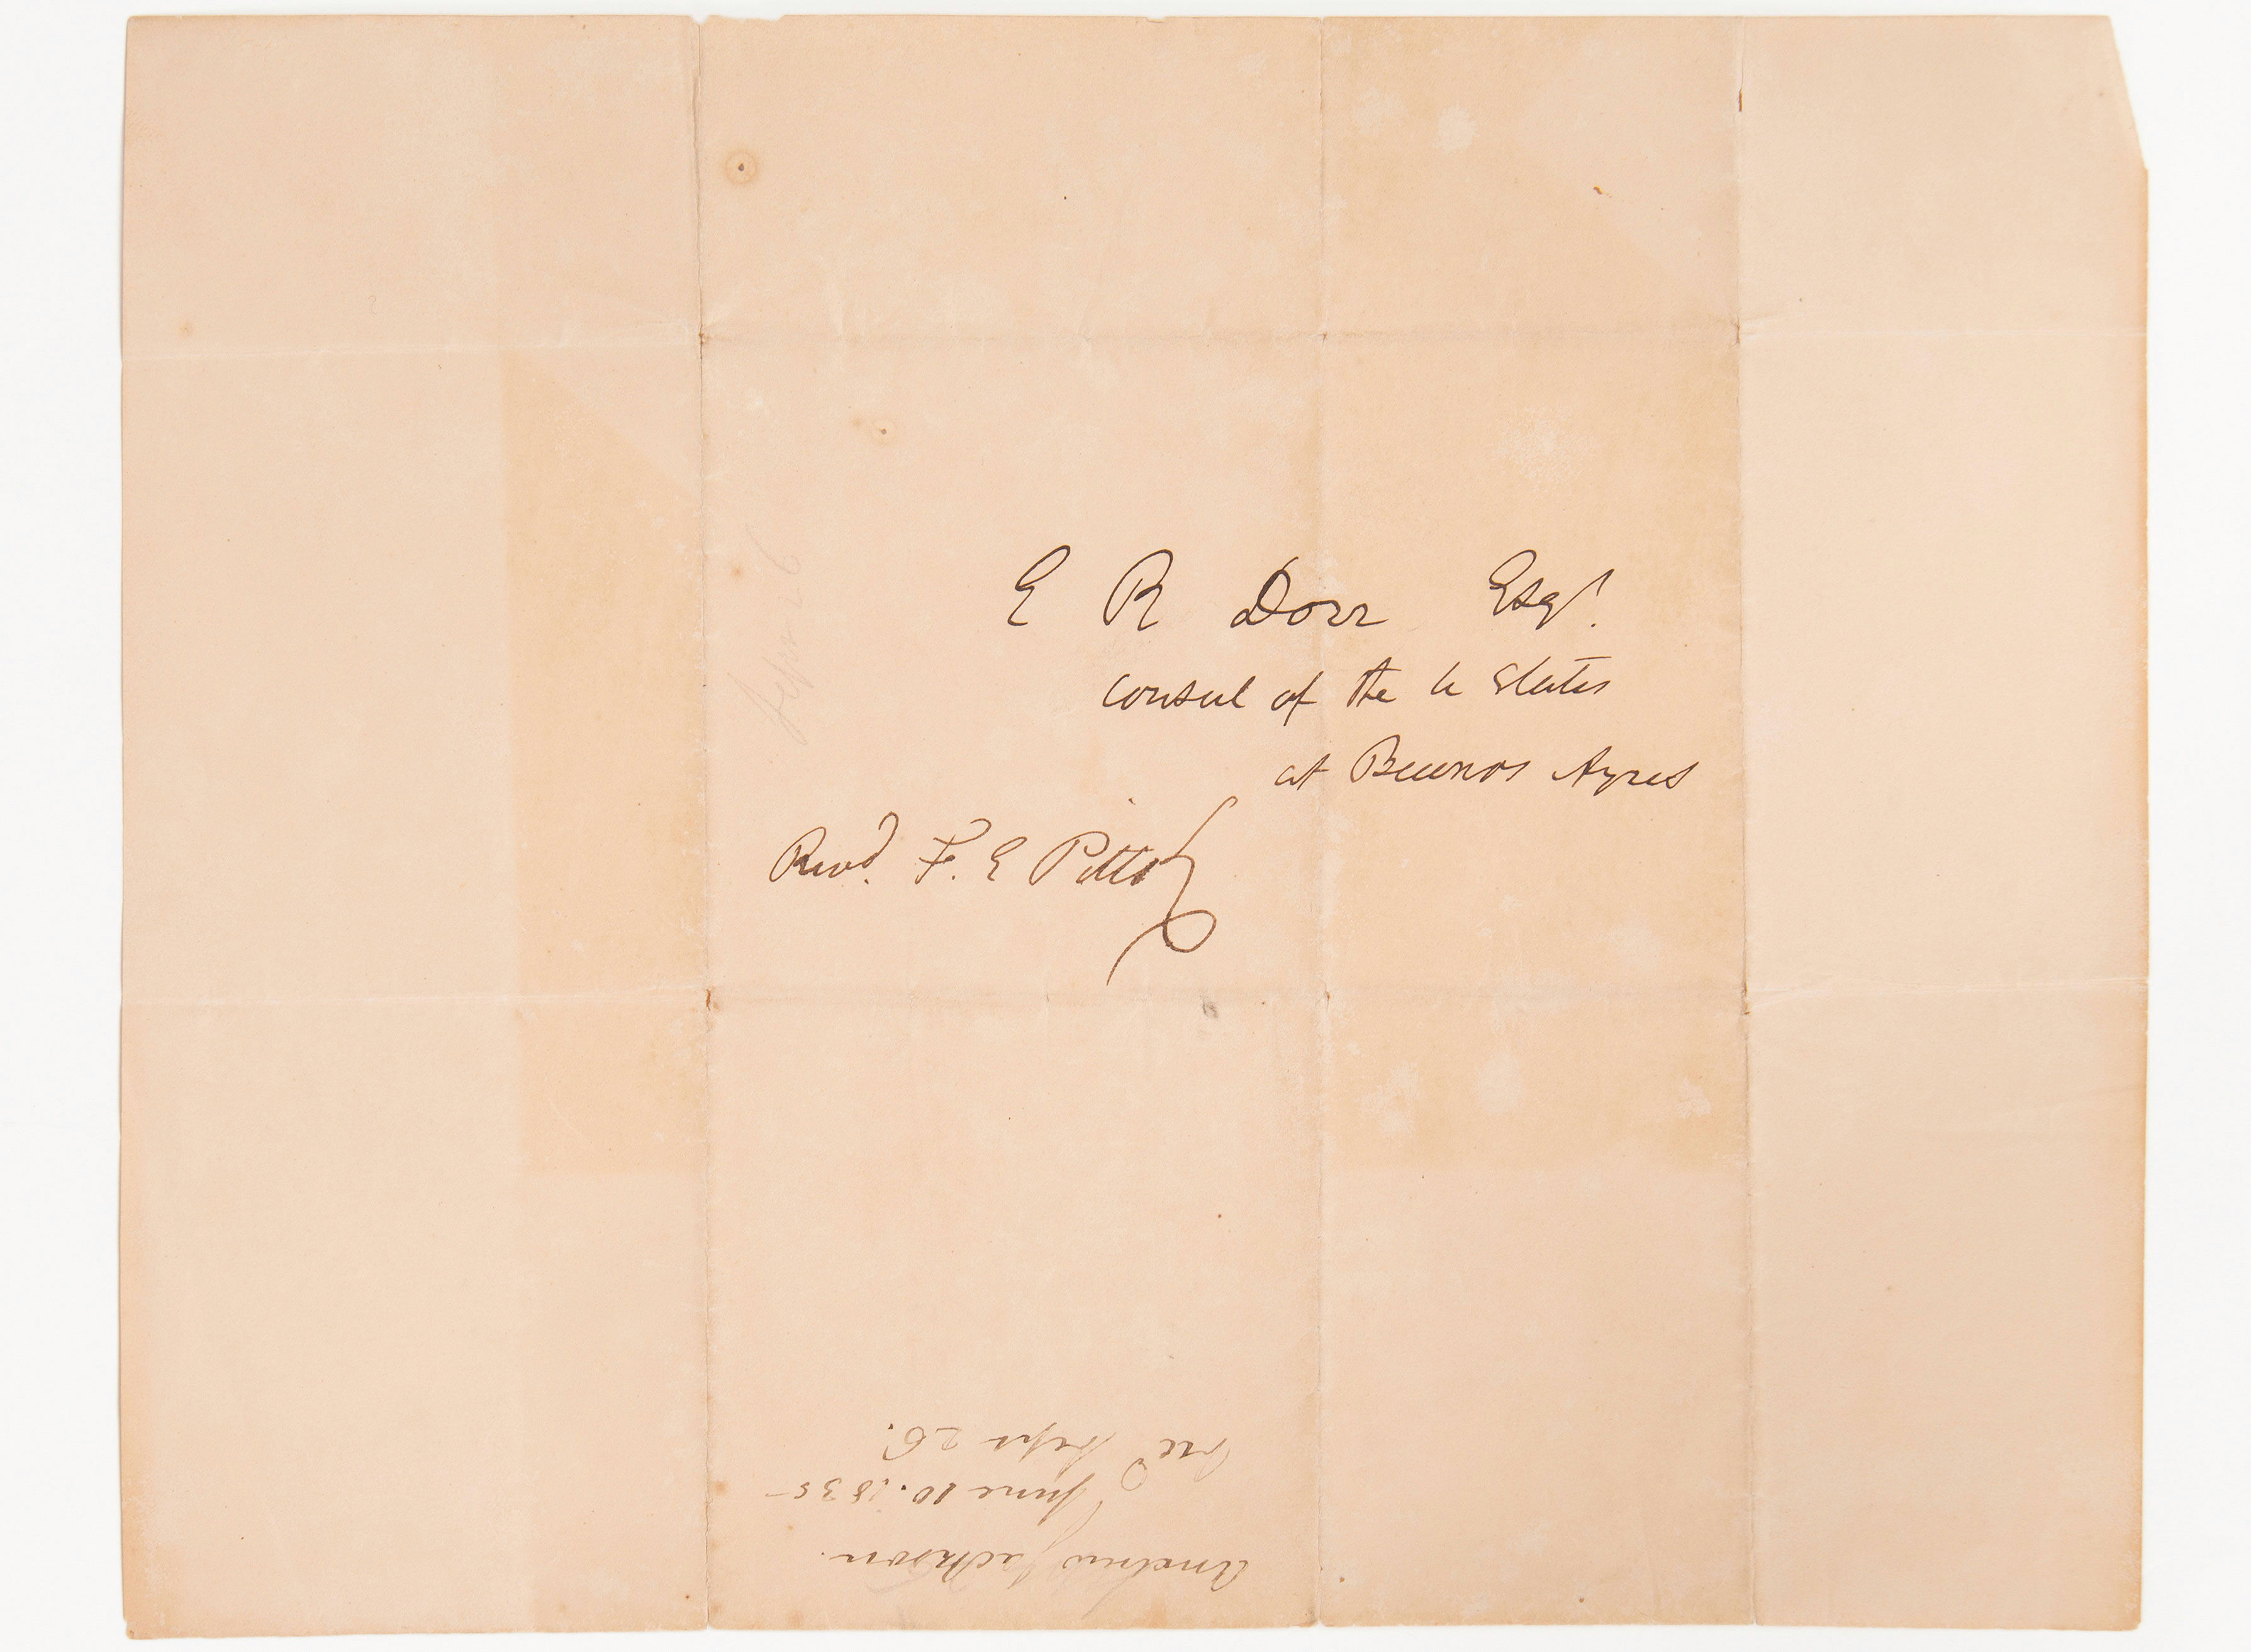 E R Dorr Esqr.
consul of the U States
at Buenos Ayres
Revd. F. E Pitts
Andrew Jackson.
June 10. 1835-
Recd Sept 26.
Sept 26